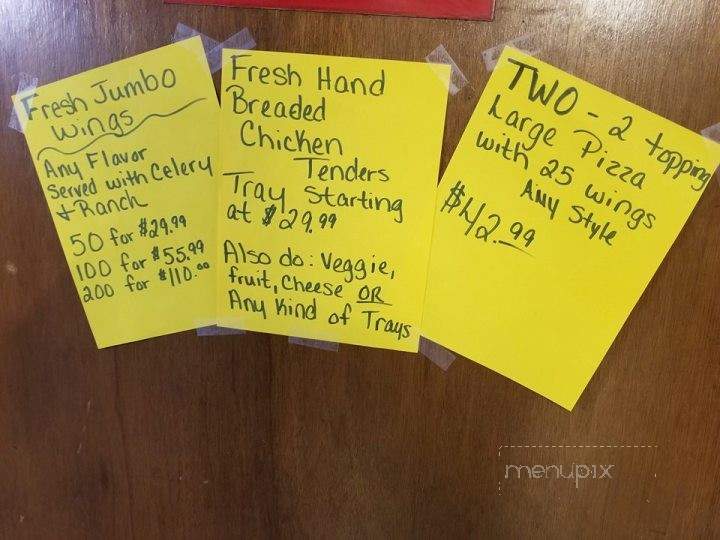 Fresh Jumbo
Wings
Any Flavor
Served with Celery
+ Ranch
50 for $29.99
100 for $55.99
200 for $110.00
Fresh Hand
Breaded
Chicken
Tenders
Tray Starting
at $29.99
Also do: Veggie,
fruit, Cheese OR
Any Kind of Trays
TWO - 2 topping
Large Pizza
with 25 wings
Any Style
$42.99
menupix